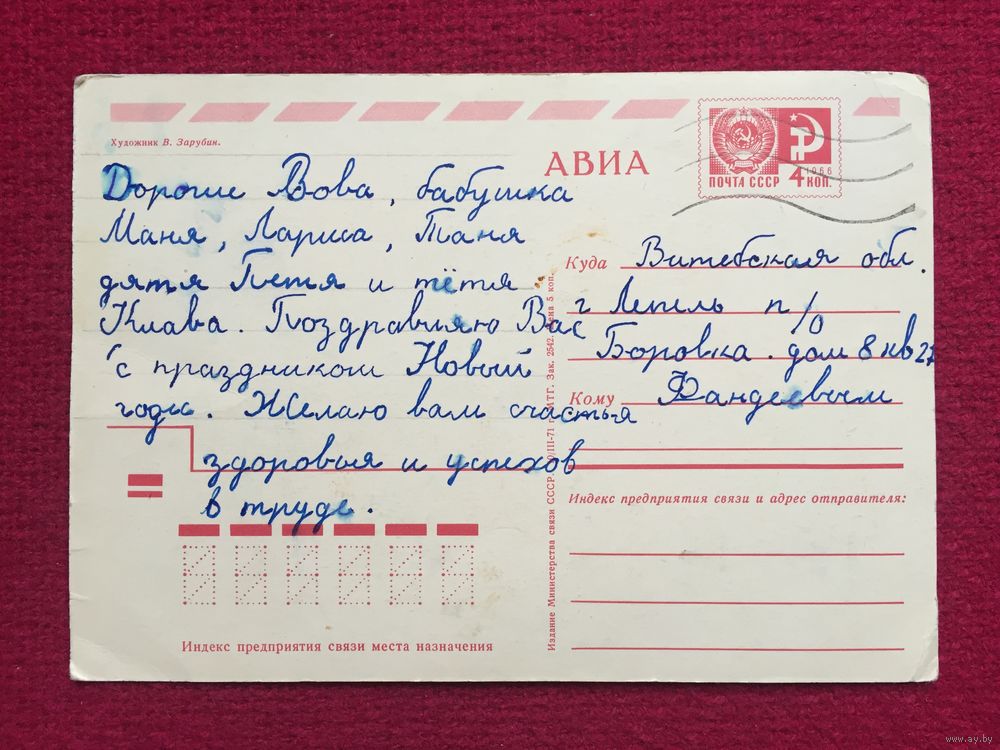 Художник В. Зарубин.
АВИА
ПОЧТА СССР
1966
4 КОП.
Дорогие Вова, бабушка
Маня, Лариса, Таня
дятя Петя и тётя
Клава. Поздравляю Вас
с праздником Новый
годы. Желаю вам счастья
здоровья и успехов
в труде.
Куда Витебская обл.
г Лепель п/о
Боровка. дом 8 кв 27
Кому Фандеевым
Индекс предприятия связи и адрес отправителя:
Индекс предприятия связи места назначения
Издание Министерства связи СССР. /III-71 г. МТГ. Зак. 2542. Цена 5 коп.
www.ay.by